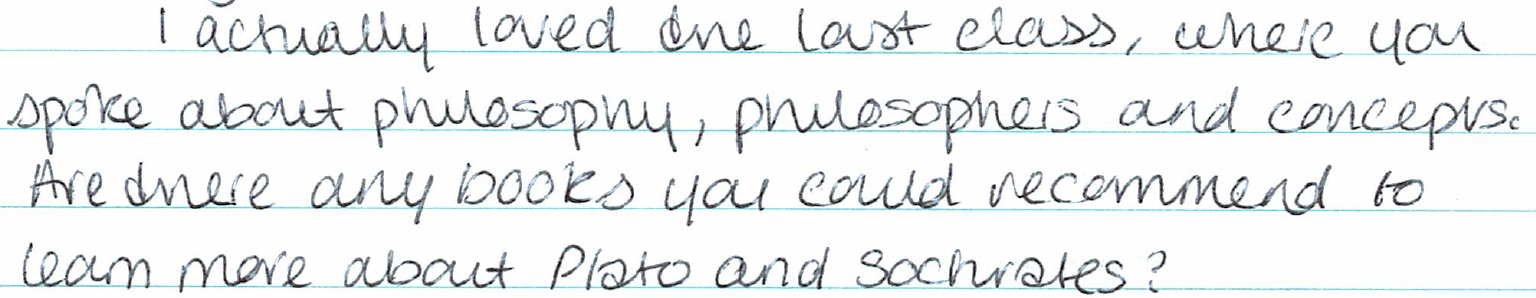 I actually loved the last class, where you
spoke about philosophy, philosophers and concepts.
Are there any books you could recommend to
learn more about Plato and Sochrates?